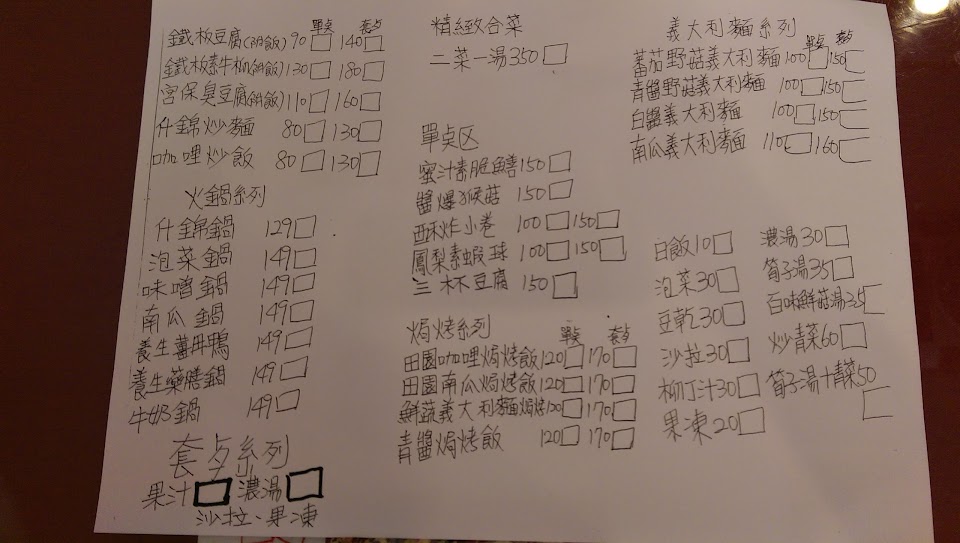 單点 套点
鐵板豆腐(附飯)90□ 140□
鐵板素牛柳(附飯)130□ 180□
宮保臭豆腐(附飯)110□ 160□
什錦炒麵 80□ 130□
咖哩炒飯 80□ 130□
火鍋系列
什錦鍋 129□
泡菜鍋 149□
味噌鍋 149□
南瓜鍋 149□
養生薑母鴨 149□
養生藥膳鍋 149□
牛奶鍋 149□
套点系列
果汁□ 濃湯□
沙拉、果凍
精緻合菜
二菜一湯350□
單点区
蜜汁素脆鱔150□
醬爆猴菇 150□
酥炸小卷 100□150□
鳳梨素蝦球 100□150□
三杯豆腐 150□
焗烤系列 單点 套点
田園咖哩焗烤飯120□ 170□
田園南瓜焗烤飯120□ 170□
鮮蔬義大利麵焗烤120□ 170□
青醬焗烤飯 120□ 170□
義大利麵系列
單点 套点
蕃茄野菇義大利麵100□150□
青醬野菇義大利麵 100□150□
白醬義大利麵 100□150□
南瓜義大利麵 110□160□
白飯10□
泡菜30□
豆乾30□
沙拉30□
柳丁汁30□
果凍20□
濃湯30□
筍子湯35□
百味鮮菇湯35□
炒青菜60□
筍子湯+青菜50
□